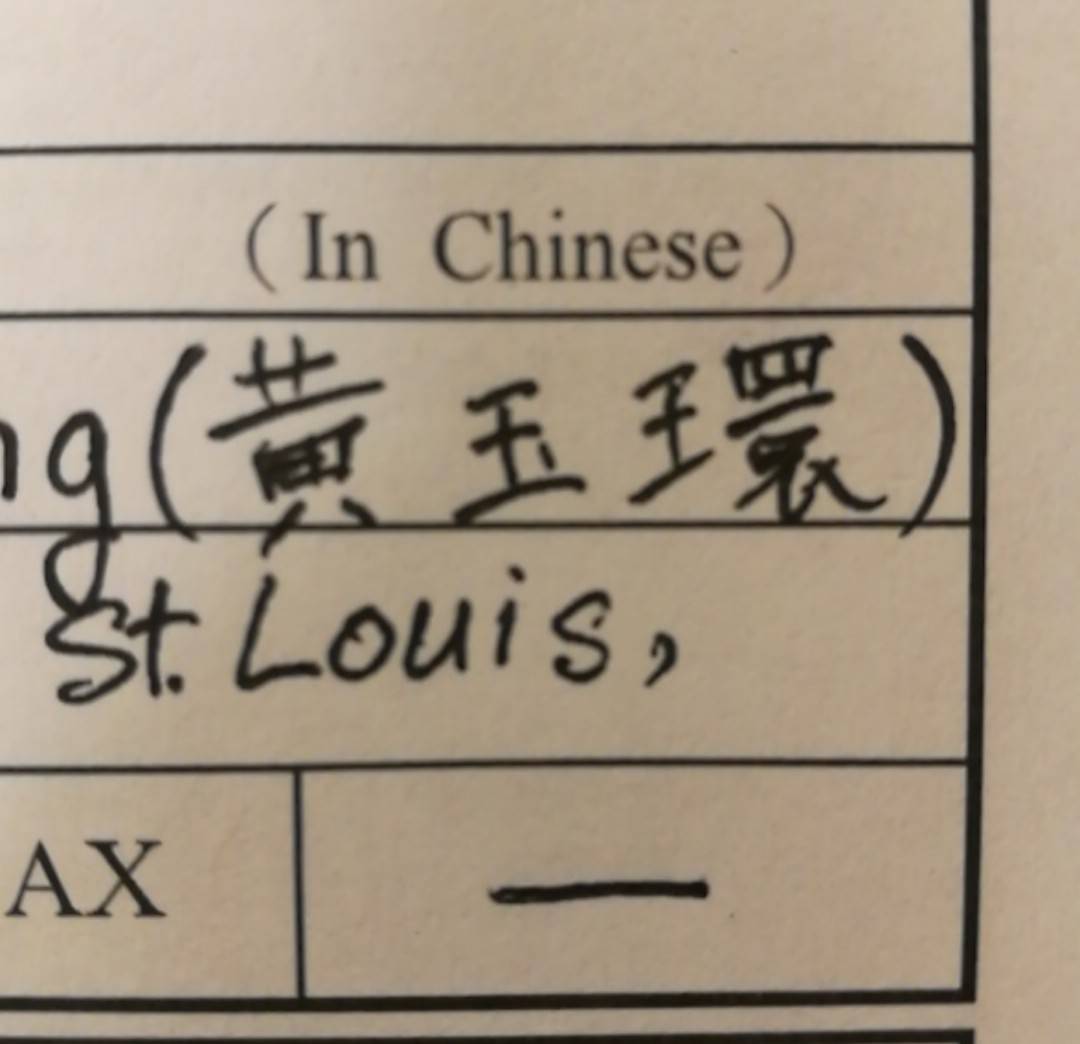 (In Chinese)
ng (黃玉環)
St. Louis,
AX —